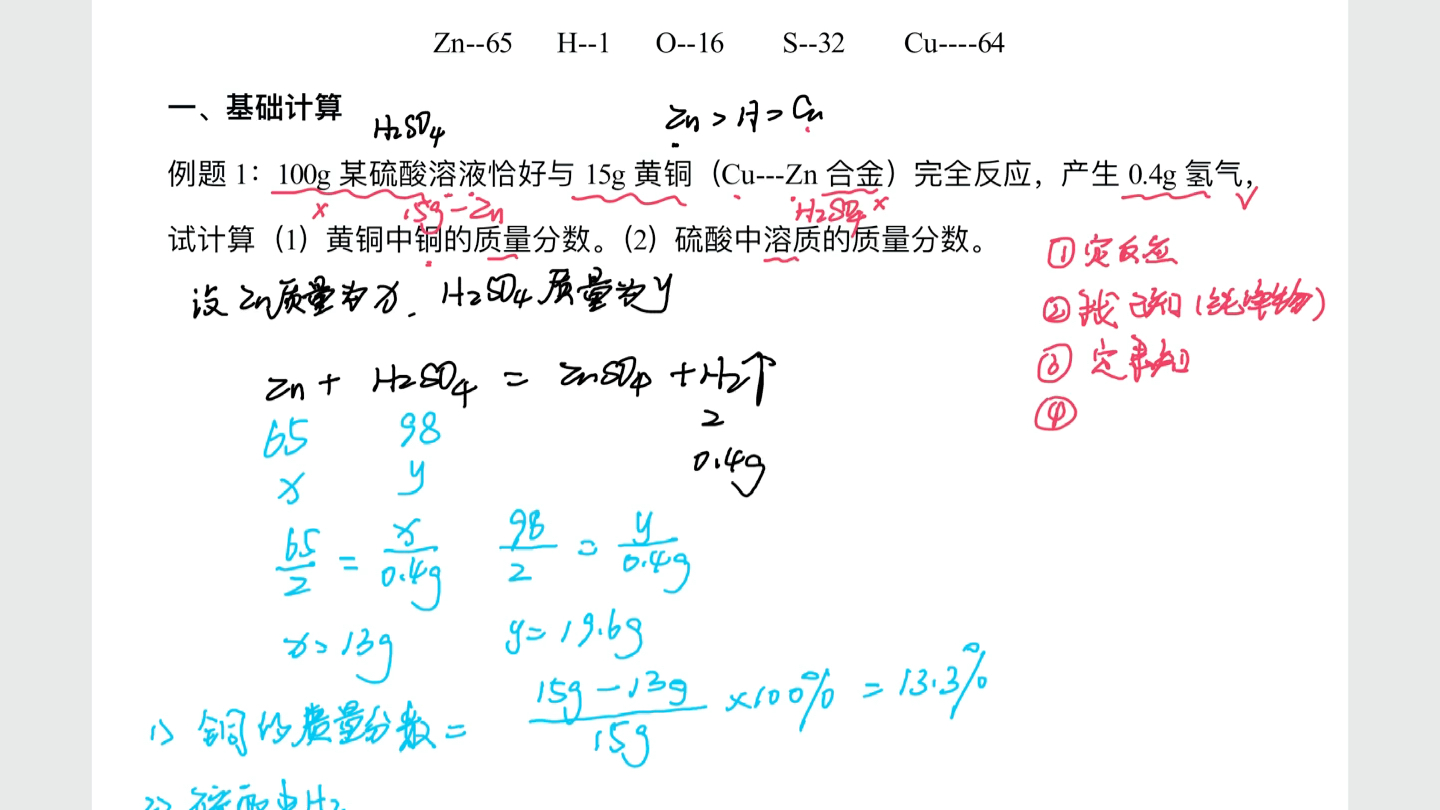 Zn--65 H--1 O--16 S--32 Cu----64
一、基础计算
H₂SO₄ Zn > H > Cu
例题 1：100g 某硫酸溶液恰好与 15g 黄铜（Cu---Zn 合金）完全反应，产生 0.4g 氢气，
x 15g-Zn H₂SO₄ x √
试计算（1）黄铜中铜的质量分数。（2）硫酸中溶质的质量分数。
①定反应
设 Zn质量为x. H₂SO₄质量为y
②找已知(纯净物)
③定未知
Zn + H₂SO₄ = ZnSO₄ + H₂↑
④
65 98 2
x y 0.4g
65/2 = x/0.4g 98/2 = y/0.4g
x=13g y=19.6g
1) 铜的质量分数= (15g-13g)/15g ×100% = 13.3%